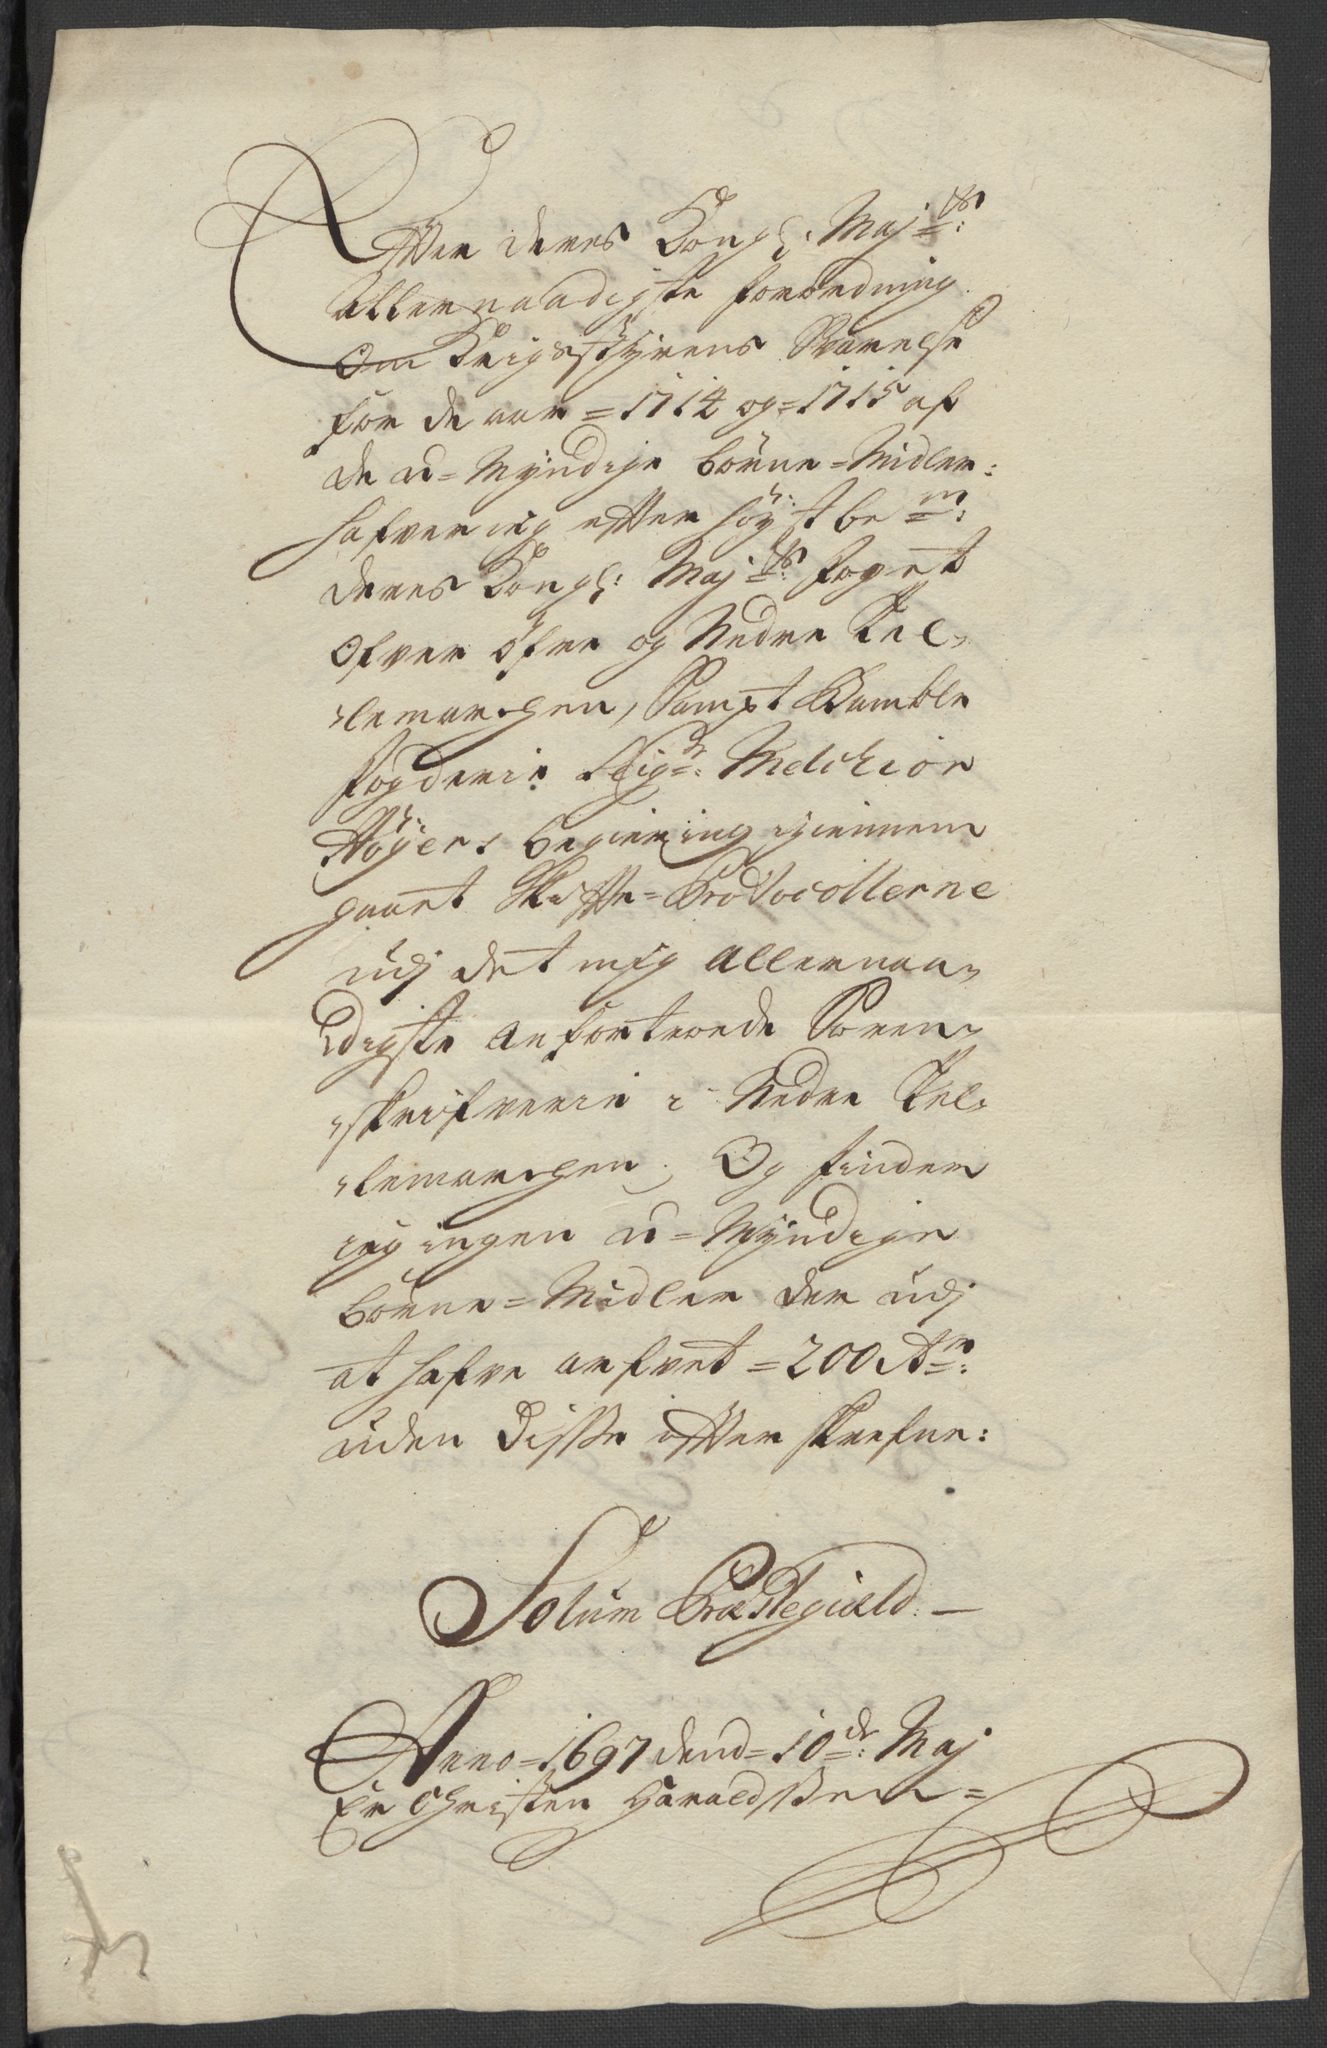 Effter deres Kongl: Maj:ts
Allernaadigste forordning
Om Krigsstyrens Svarelse
for de aar = 1714 og = 1715 af
de u=Myndige börne=Midler:
hafver ieg efter höyst bem:
deres Kongl: Maj:ts foget
Ofver öfre og Nedre Tel,,
,,lemarchen, Sampt Bamble
fogderie Sigr: Melchior
Höyers begiering igiennem
gaaet Skiffte=Protocollerne
udj det mig Allernaa,,
,,digste anfortroede Soren,,
,,skrifverie i Nedre Tel,,
,,lemarchen, Og finder
ieg ingen u=Myndige
börne=Midler der udj
at hafve arfvet = 200 dr:
uden disse effterskrefne:
Solum Præstegield. —
Anno = 1697 dend = 10de: Maj
Er Christen Haraldssen =